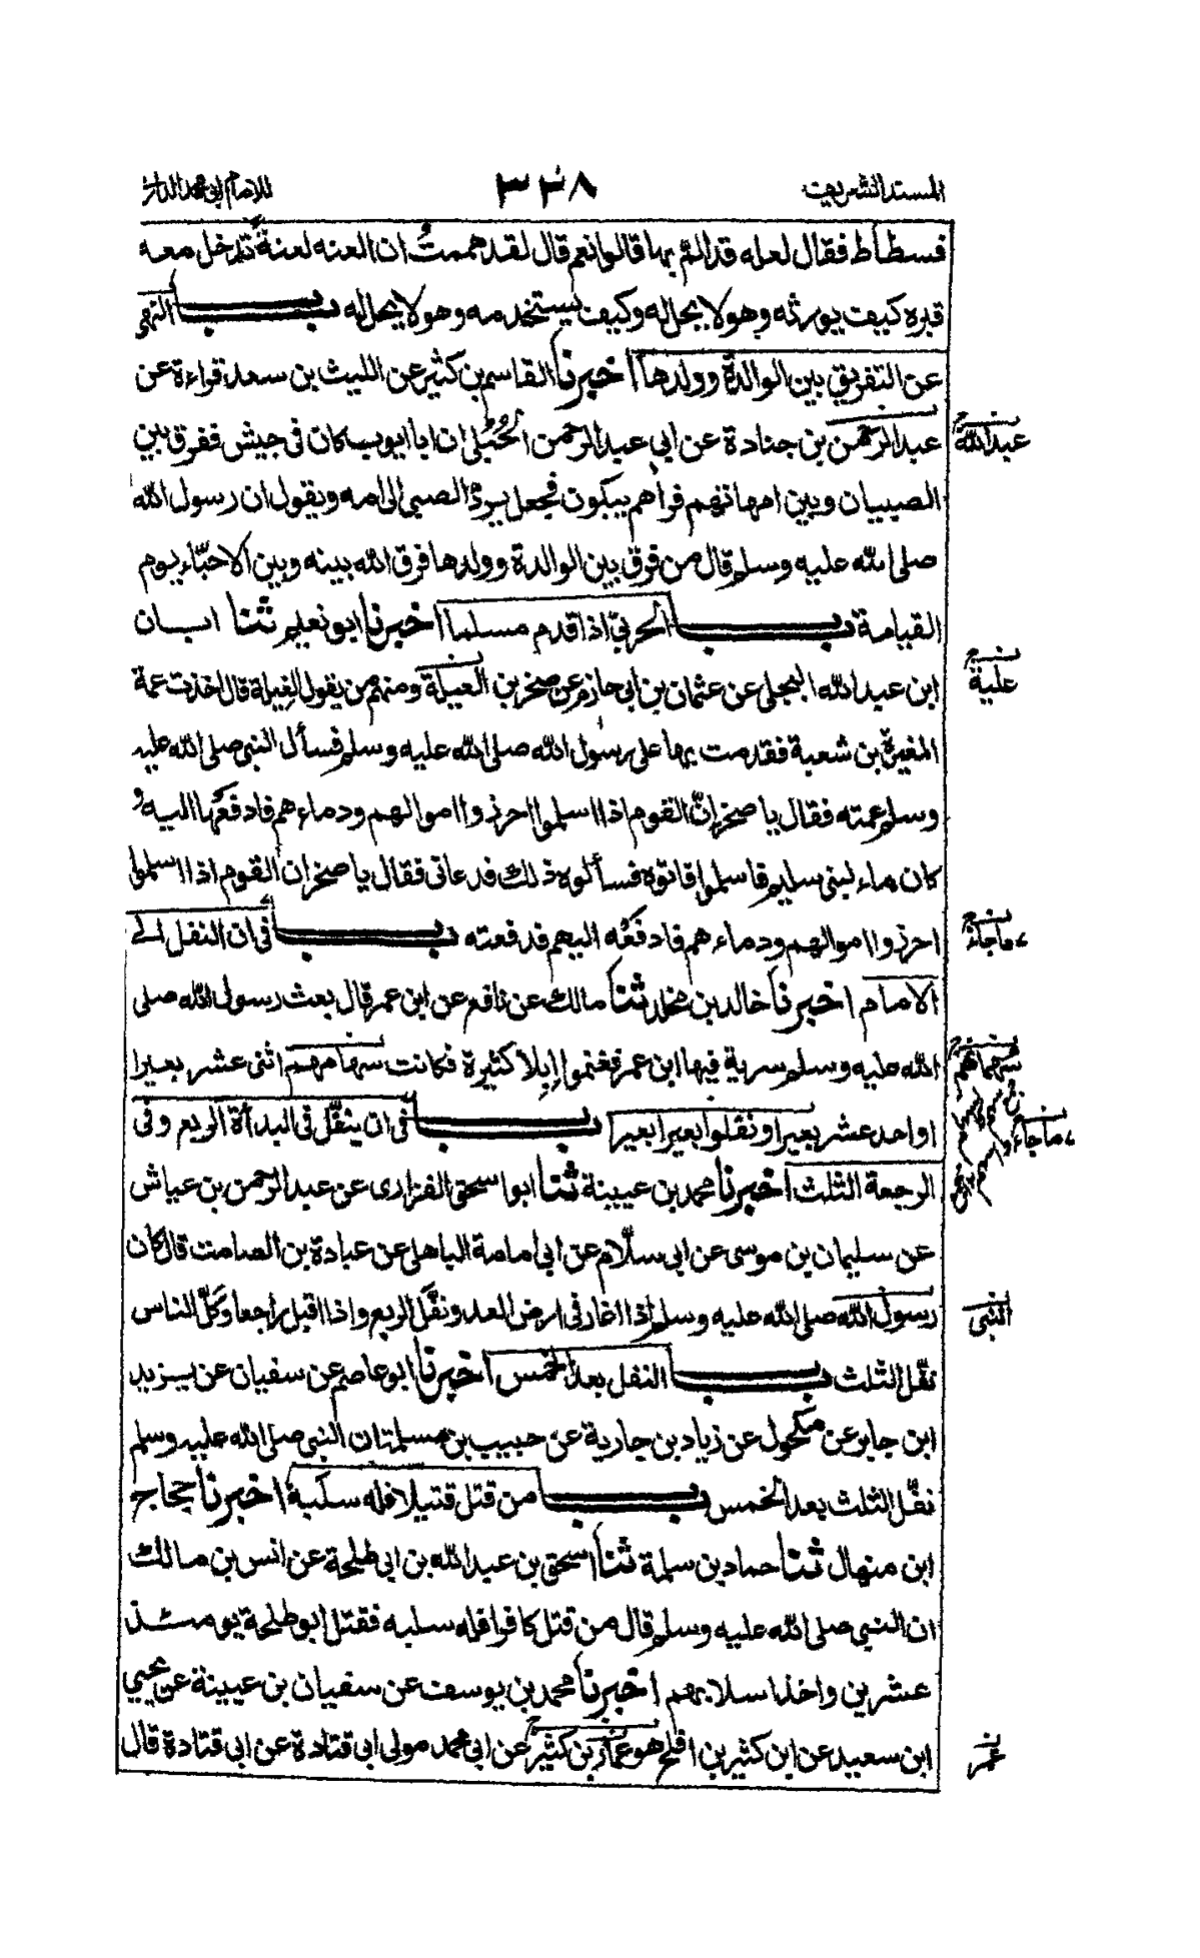 المسند الشريف ٣٣٨ للامام ابي محمد الدارمي
فسطاط فقال لعله قد الم بها قالوا نعم قال لقد هممت ان العنه لعنة تدخل معه
قبره كيف يورثه وهو لا يحل له وكيف يستخدمه وهو لا يحل له باب النهي
عن التفريق بين الوالدة وولدها اخبرنا القاسم بن كثير عن الليث بن سعد قراءة عن
عبد الرحمن بن جنادة عن ابي عبد الرحمن الحُبُلي ان ابا ايوب كان في جيش ففرق بين
نسخ عبد الله
الصبيان وبين امهاتهم فراهم يبكون فجعل يردّ الصبي الى امه ويقول ان رسول الله
صلى الله عليه وسلم قال من فرق بين الوالدة وولدها فرق الله بينه وبين الاحبّاء يوم
القيامة باب الحربي اذا قدم مسلما اخبرنا ابو نعيم ثنا ابان
ابن عبد الله البجلي عن عثمان بن ابي حازم عن صخر بن العيلة ومنهم من يقول الغيلة قال اخذت عمة
نسخ علية
المغيرة بن شعبة فقدمت بها على رسول الله صلى الله عليه وسلم فسأل النبي صلى الله عليه
وسلم عمته فقال يا صخر انّ القوم اذا اسلموا احرزوا اموالهم ودماءهم فادفعها اليه و
كان ماء لبني سليم فاسلموا فاتوه فسألوه ذلك فدعاني فقال يا صخر ان القوم اذا اسلموا
احرزوا اموالهم ودماءهم فادفعه اليهم فدفعته باب في ان النفل الى
نسخ ماجاء
الامام اخبرنا خالد بن مخلد ثنا مالك عن نافع عن ابن عمر قال بعث رسول الله صلى
الله عليه وسلم سرية فيها ابن عمر فغنموا ابلا كثيرة فكانت سهامهم اثنى عشر بعيرا
نسخ سهمانهم
او احد عشر بعيرا ونفلوا بعيرا بعيرا باب في ان ينفّل في البدأة الربع وفي
نسخ ماجاء
الرجعة الثلث اخبرنا محمد بن عيينة ثنا ابو اسحق الفزاري عن عبد الرحمن بن عياش
عن سليمان بن موسى عن ابي سلّام عن ابي امامة الباهلي عن عبادة بن الصامت قال كان
رسول الله صلى الله عليه وسلم اذا اغار في ارض العدو نفّل الربع واذا اقبل راجعا وكلّ الناس
النبي
نفّل الثلث باب النفل بعد الخمس اخبرنا ابو عاصم عن سفيان عن يزيد
ابن جابر عن مكحول عن زياد بن جارية عن حبيب بن مسلمة ان النبي صلى الله عليه وسلم
نفّل الثلث بعد الخمس باب من قتل قتيلا فله سلبه اخبرنا حجاج
ابن منهال ثنا حماد بن سلمة ثنا اسحق بن عبد الله بن ابي طلحة عن انس بن مالك
ان النبي صلى الله عليه وسلم قال من قتل كافرا فله سلبه فقتل ابو طلحة يومئذ
عشرين واخذ اسلابهم اخبرنا محمد بن يوسف عن سفيان بن عيينة عن يحيي
ابن سعيد عن ابن كثير بن افلح هو عمر بن كثير عن ابي محمد مولى ابي قتادة عن ابي قتادة قال
عمر